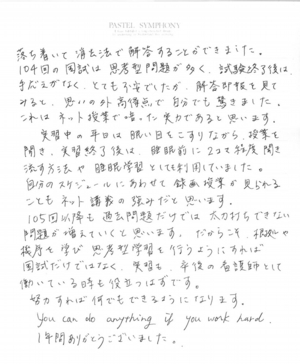 PASTEL SYMPHONY
落ち着いて消去法で解答することができました。
104回の国試は思考型問題が多く、試験終了後は、
手だえがなく、とても不安でしたが、解答即報を見て
みると、思いの外高得点で自分でも驚きました。
これはネット授業で培った実力であると思います。
実習中の平日は眠い目をこすりながら、授業を
聞き、実習終了後は、睡眠前に2コマ程度聞き
流す方法や睡眠学習としても利用していました。
自分のスケジュールにあわせて録画授業が見られる
ことも ネット講義の強みだと思います。
105回以降も過去問題だけでは太刀打ちできない
問題が増えていくと思います。だからこそ、根拠や
機序を学び思考型学習を行うようにすれば
国試だけではなく、実習も、卒後の看護師として
働いている時も役立つはずです。
努力すれば何でもできるようになります。
You can do anything if you work hard.
1年間ありがとうございました。